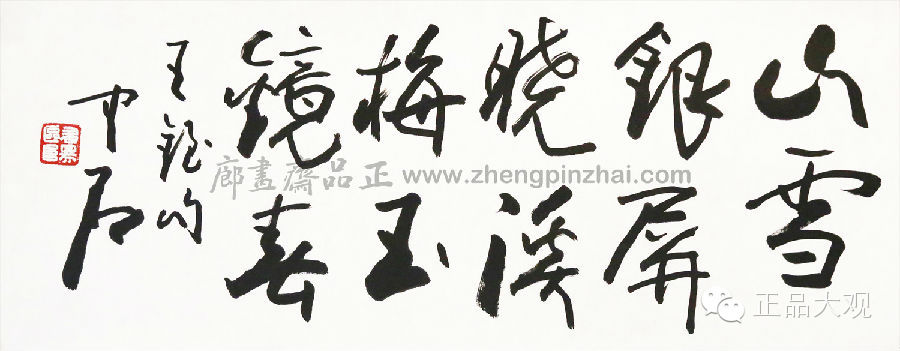 山雪
銀屏
晓溪
梅玉
鏡春
王銍句
中石
正品齋畫廊 www.zhengpinzhai.com
正品大观